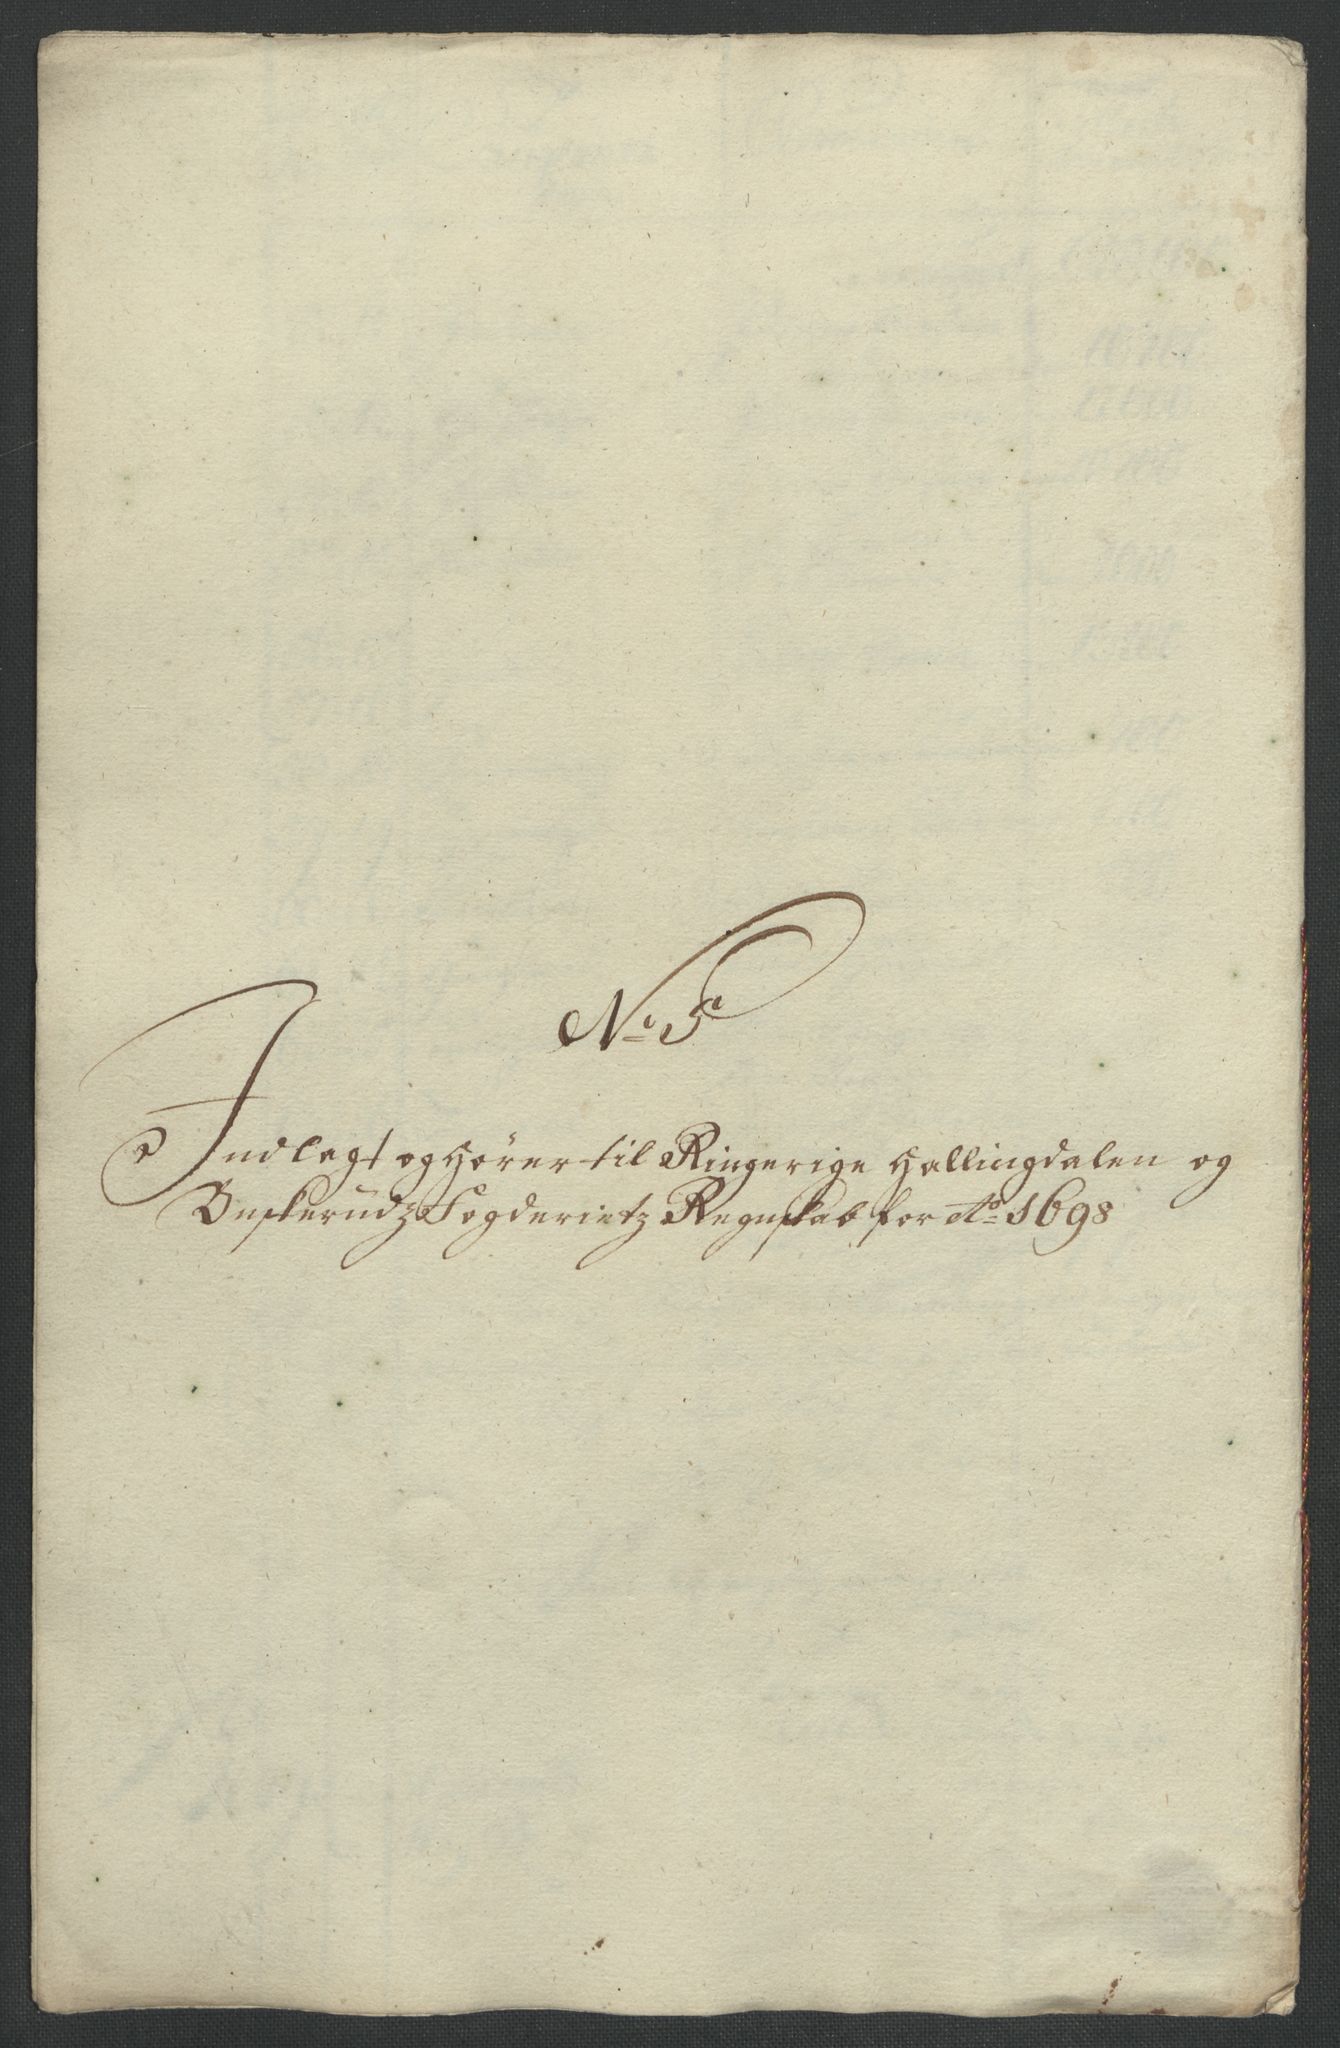 No 5
Indlagt og Hører til Ringerige Hallingdalen og
Buskerudz Fogderietz Regnskab for Ao 1698